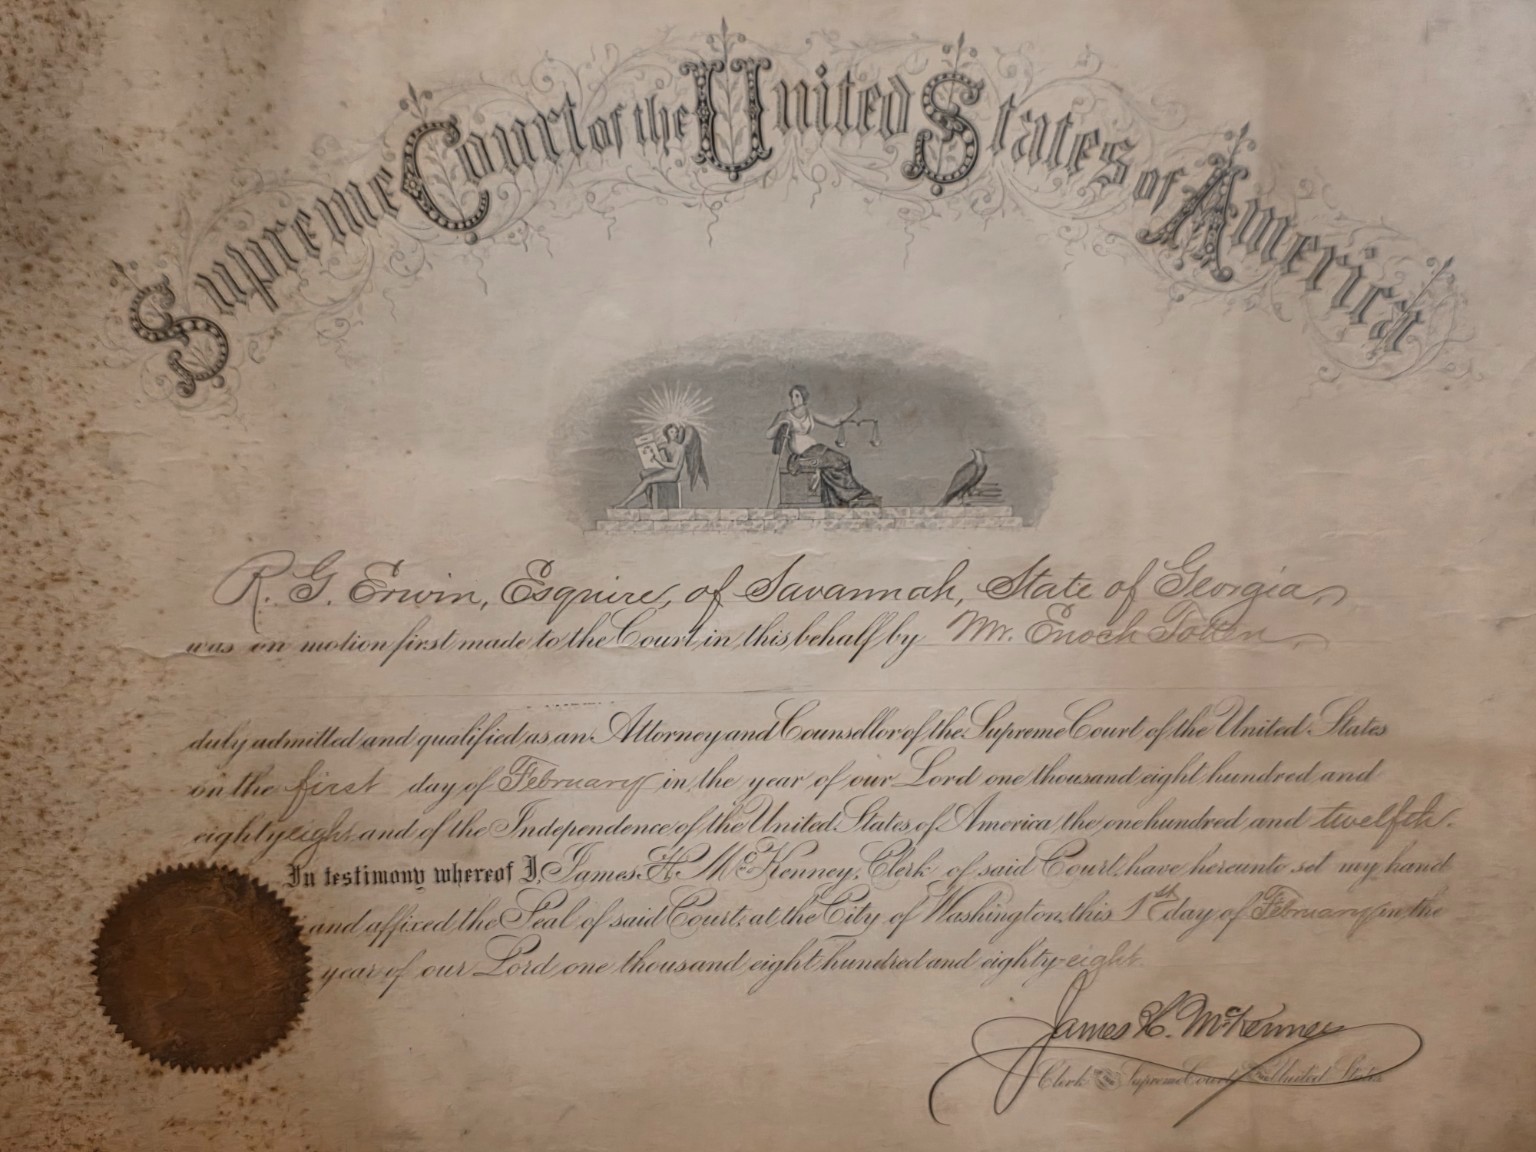 Supreme Court of the United States of America
R. G. Erwin, Esquire, of Savannah, State of Georgia,
was on motion first made to the Court in this behalf by Mr. Enoch Totten,
duly admitted and qualified as an Attorney and Counsellor of the Supreme Court of the United States
on the first day of February in the year of our Lord one thousand eight hundred and
eighty eight and of the Independence of the United States of America the one hundred and twelfth.
In testimony whereof I, James H. McKenney, Clerk of said Court, have hereunto set my hand
and affixed the Seal of said Court, at the City of Washington, this 1st day of February in the
year of our Lord one thousand eight hundred and eighty-eight.
James H. McKenney
Clerk Supreme Court United States